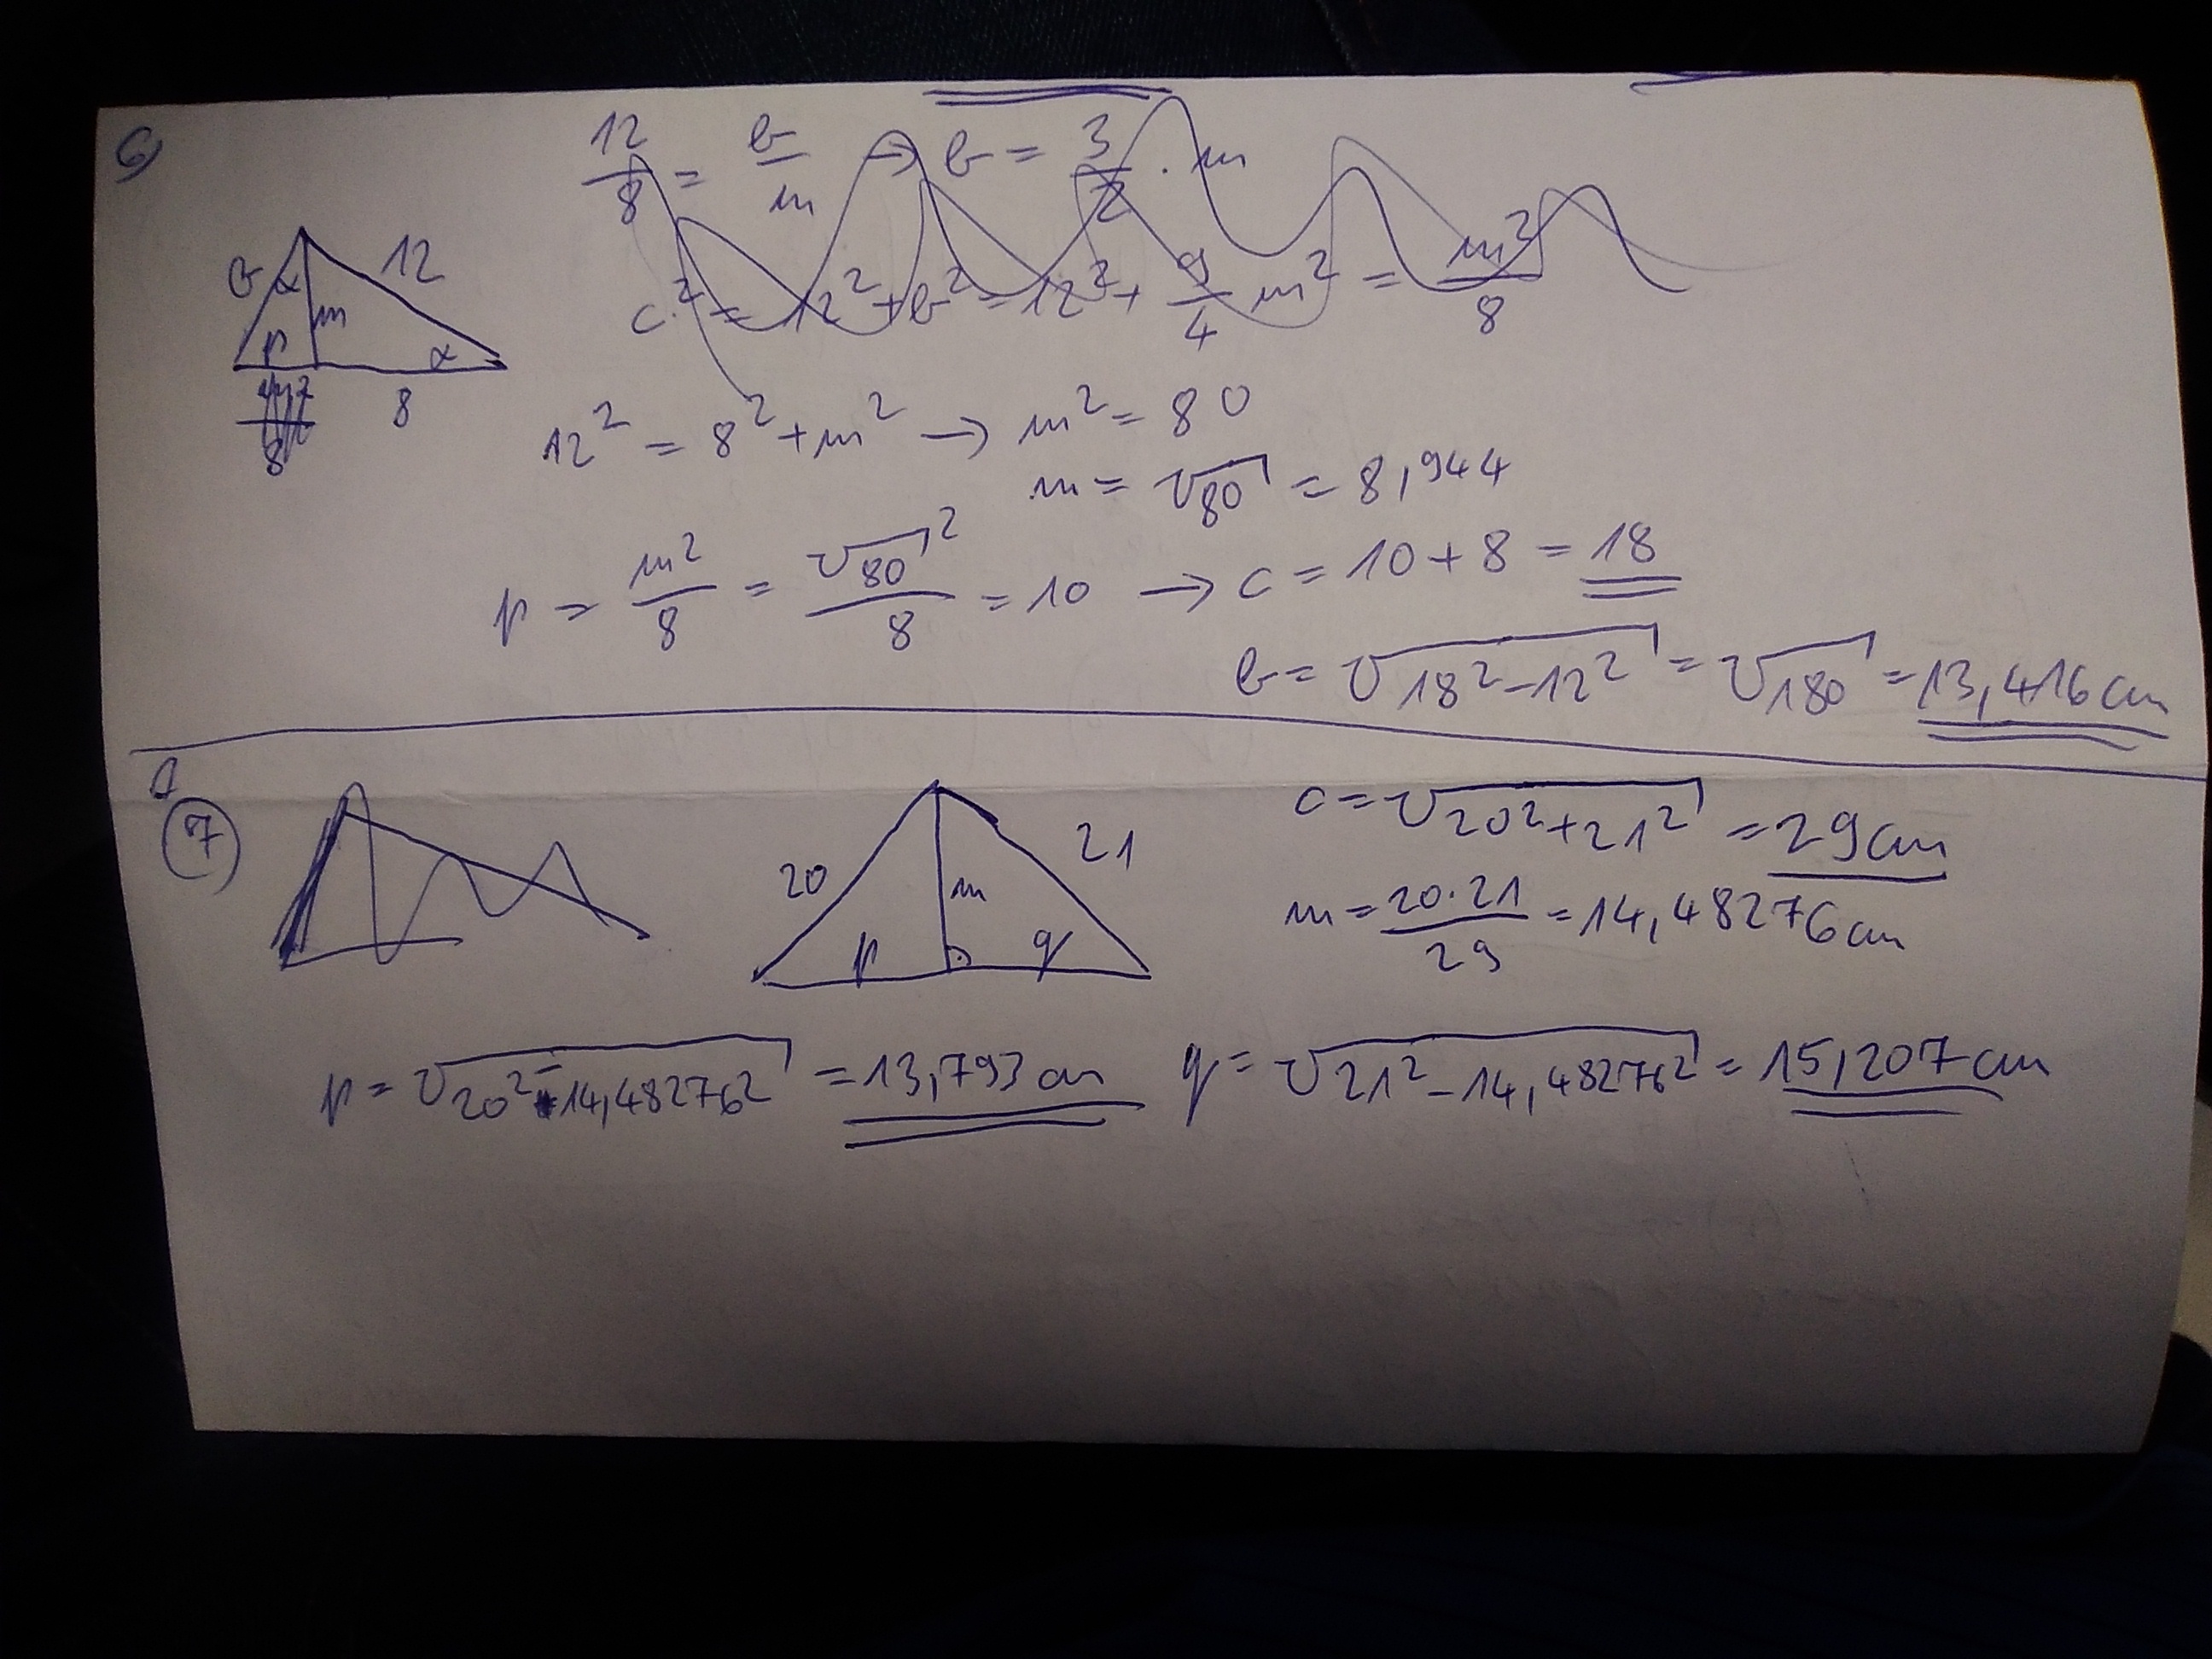 6)
12/8 = b/m → b = 3/2 · m
c² = 12² + b² = 12² + 9/4 m² = m²/8
b α 12
p m α
8
12² = 8² + m² → m² = 80
m = √80 = 8,944
p = m²/8 = √80²/8 = 10 → c = 10 + 8 = 18
b = √18² - 12² = √180 = 13,416 cm
7
20 21
m
p q
c = √20² + 21² = 29 cm
m = 20·21/29 = 14,48276 cm
p = √20² - 14,48276² = 13,793 cm q = √21² - 14,48276² = 15,207 cm